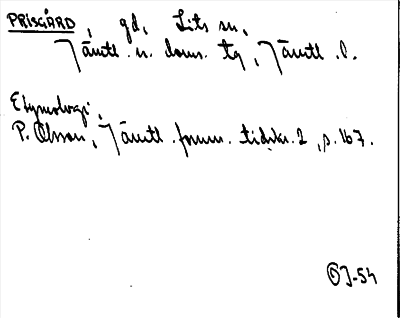 PRISGÅRD, gd, Lits sn,
Jämtl. n. doms. tg, Jämtl. l.
Etymologi,
P. Olsson, Jämtl. fornm. tidskr. 2, s. 167.
OJ-54